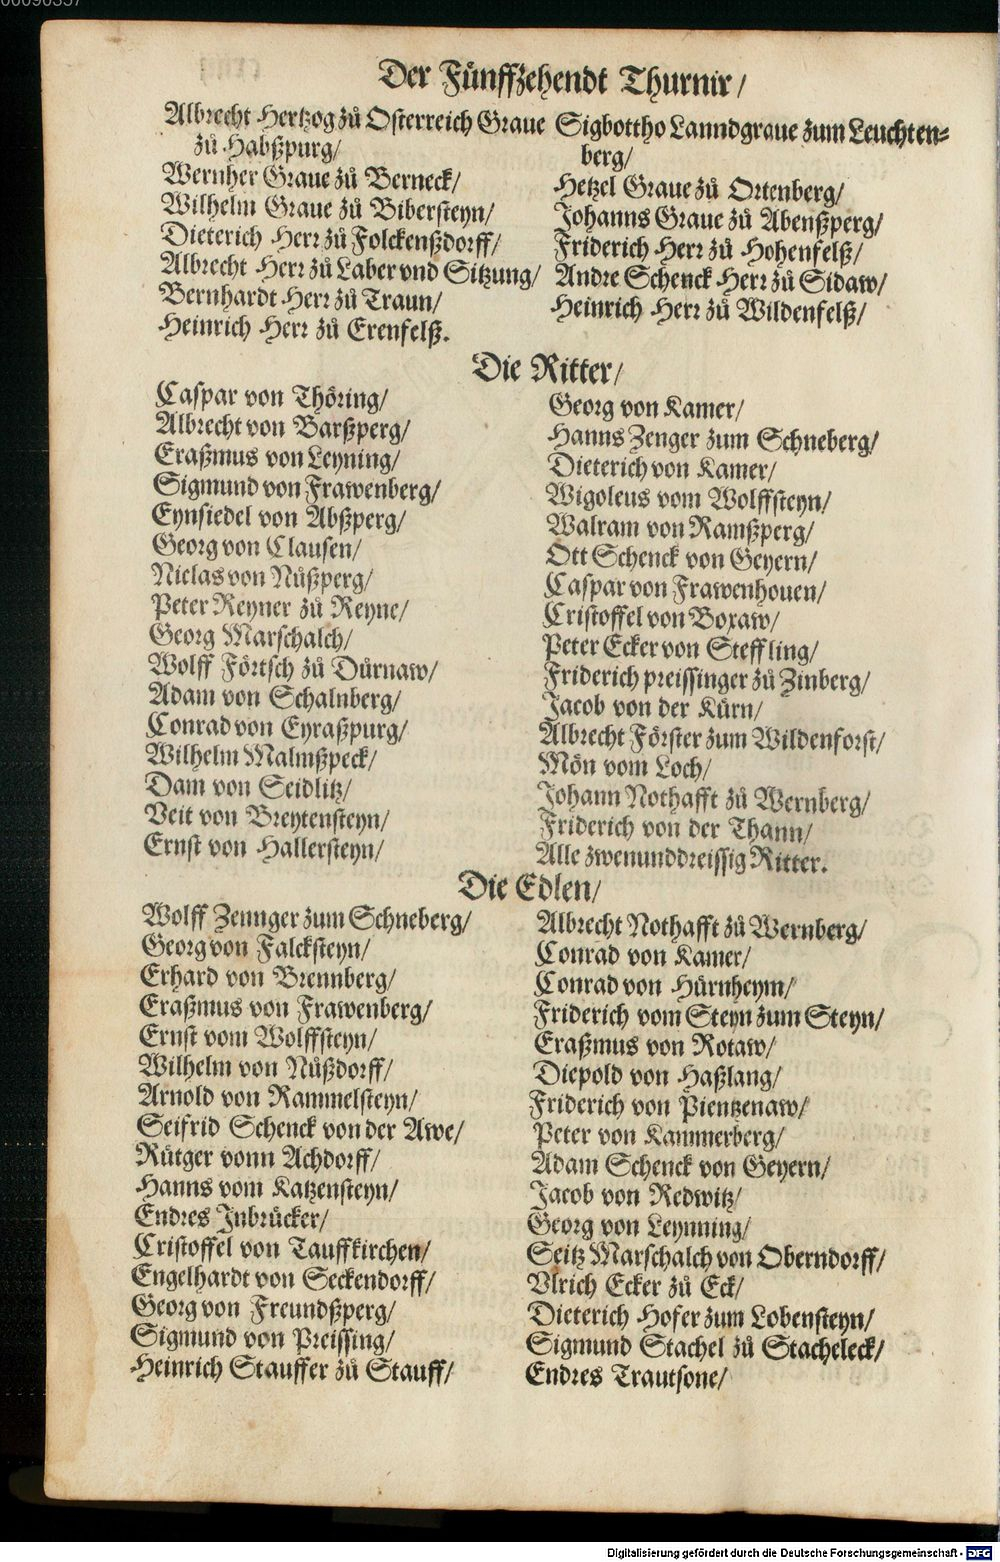 00090357
Der Fünffzehendt Thurnir/
Albrecht Hertzog zů Osterreich Graue
zů Habßpurg/
Wernher Graue zů Berneck/
Wilhelm Graue zů Bibersteyn/
Dieterich Herr zů Folckenßdorff/
Albrecht Herr zů Laber vnd Sitzung/
Bernhardt Herr zů Traun/
Heinrich Herr zů Erenfelß.
Sigbottho Lanndgraue zum Leuchten⸗
berg/
Hetzel Graue zů Ortenberg/
Johanns Graue zů Abenßperg/
Friderich Herr zů Hohenfelß/
Andre Schenck Herr zů Sidaw/
Heinrich Herr zů Wildenfelß/
Die Ritter/
Caspar von Thöring/
Albrecht von Barßperg/
Eraßmus von Leyning/
Sigmund von Frawenberg/
Eynsiedel von Abßperg/
Georg von Clausen/
Niclas von Nůßperg/
Peter Reyner zů Reyne/
Georg Marschalch/
Wolff Förtsch zů Dürnaw/
Adam von Schalnberg/
Conrad von Eyraßpurg/
Wilhelm Malmßpeck/
Dam von Seidlitz/
Veit von Breytensteyn/
Ernst von Hallersteyn/
Georg von Kamer/
Hanns Zenger zum Schneberg/
Dieterich von Kamer/
Wigoleus vom Wolffsteyn/
Walram von Ramßperg/
Ott Schenck von Geyern/
Caspar von Frawenhouen/
Cristoffel von Boxaw/
Peter Ecker von Steffling/
Friderich preissinger zů Zinberg/
Jacob von der Kürn/
Albrecht Förster zum Wildenforst/
Mön vom Loch/
Johann Nothafft zů Wernberg/
Friderich von der Thann/
Alle zwenunddreissig Ritter.
Die Edlen/
Wolff Zennger zum Schneberg/
Georg von Falcksteyn/
Erhard von Brennberg/
Eraßmus von Frawenberg/
Ernst vom Wolffsteyn/
Wilhelm von Nůßdorff/
Arnold von Rammelsteyn/
Seifrid Schenck von der Awe/
Růtger vonn Achdorff/
Hanns vom Katzensteyn/
Endres Inbrücker/
Cristoffel von Tauffkirchen/
Engelhardt von Seckendorff/
Georg von Freundßperg/
Sigmund von Preissing/
Heinrich Stauffer zů Stauff/
Albrecht Nothafft zů Wernberg/
Conrad von Kamer/
Conrad von Hürnheym/
Friderich vom Steyn zum Steyn/
Eraßmus von Rotaw/
Diepold von Haßlang/
Friderich von Pientzenaw/
Peter von Kammerberg/
Adam Schenck von Geyern/
Jacob von Redwitz/
Georg von Leynning/
Seitz Marschalch von Oberndorff/
Vlrich Ecker zů Eck/
Dieterich Hofer zum Lobensteyn/
Sigmund Stachel zů Stacheleck/
Endres Trautsone/
Digitalisierung gefördert durch die Deutsche Forschungsgemeinschaft - DFG